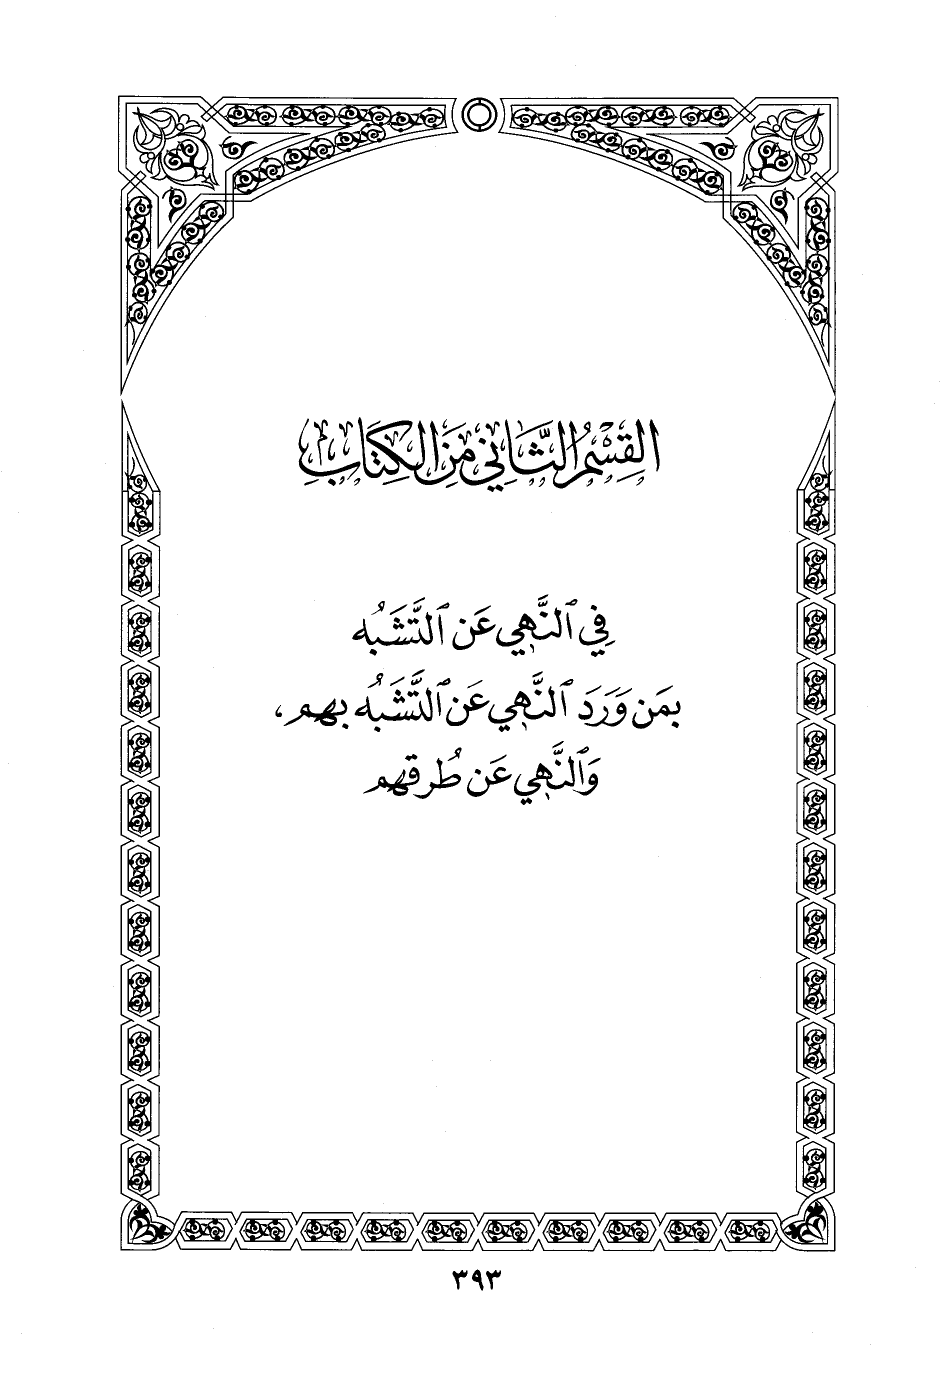 القِسْمُ الثَّاني مِنَ الكِتَابِ
فِي ٱلنَّهْيِ عَن ٱلتَّشَبُّه
بمَن وَرَدَ ٱلنَّهْي عَن ٱلتَّشَبُّه بهم،
وَٱلنَّهْي عَن طُرقهم
٣٩٣